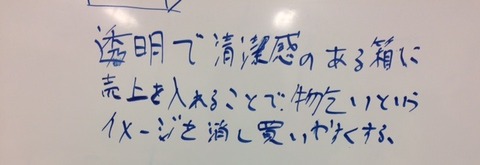 透明で清潔感のある箱に
売上を入れることで、物乞いという
イメージを消し買いやすくする。